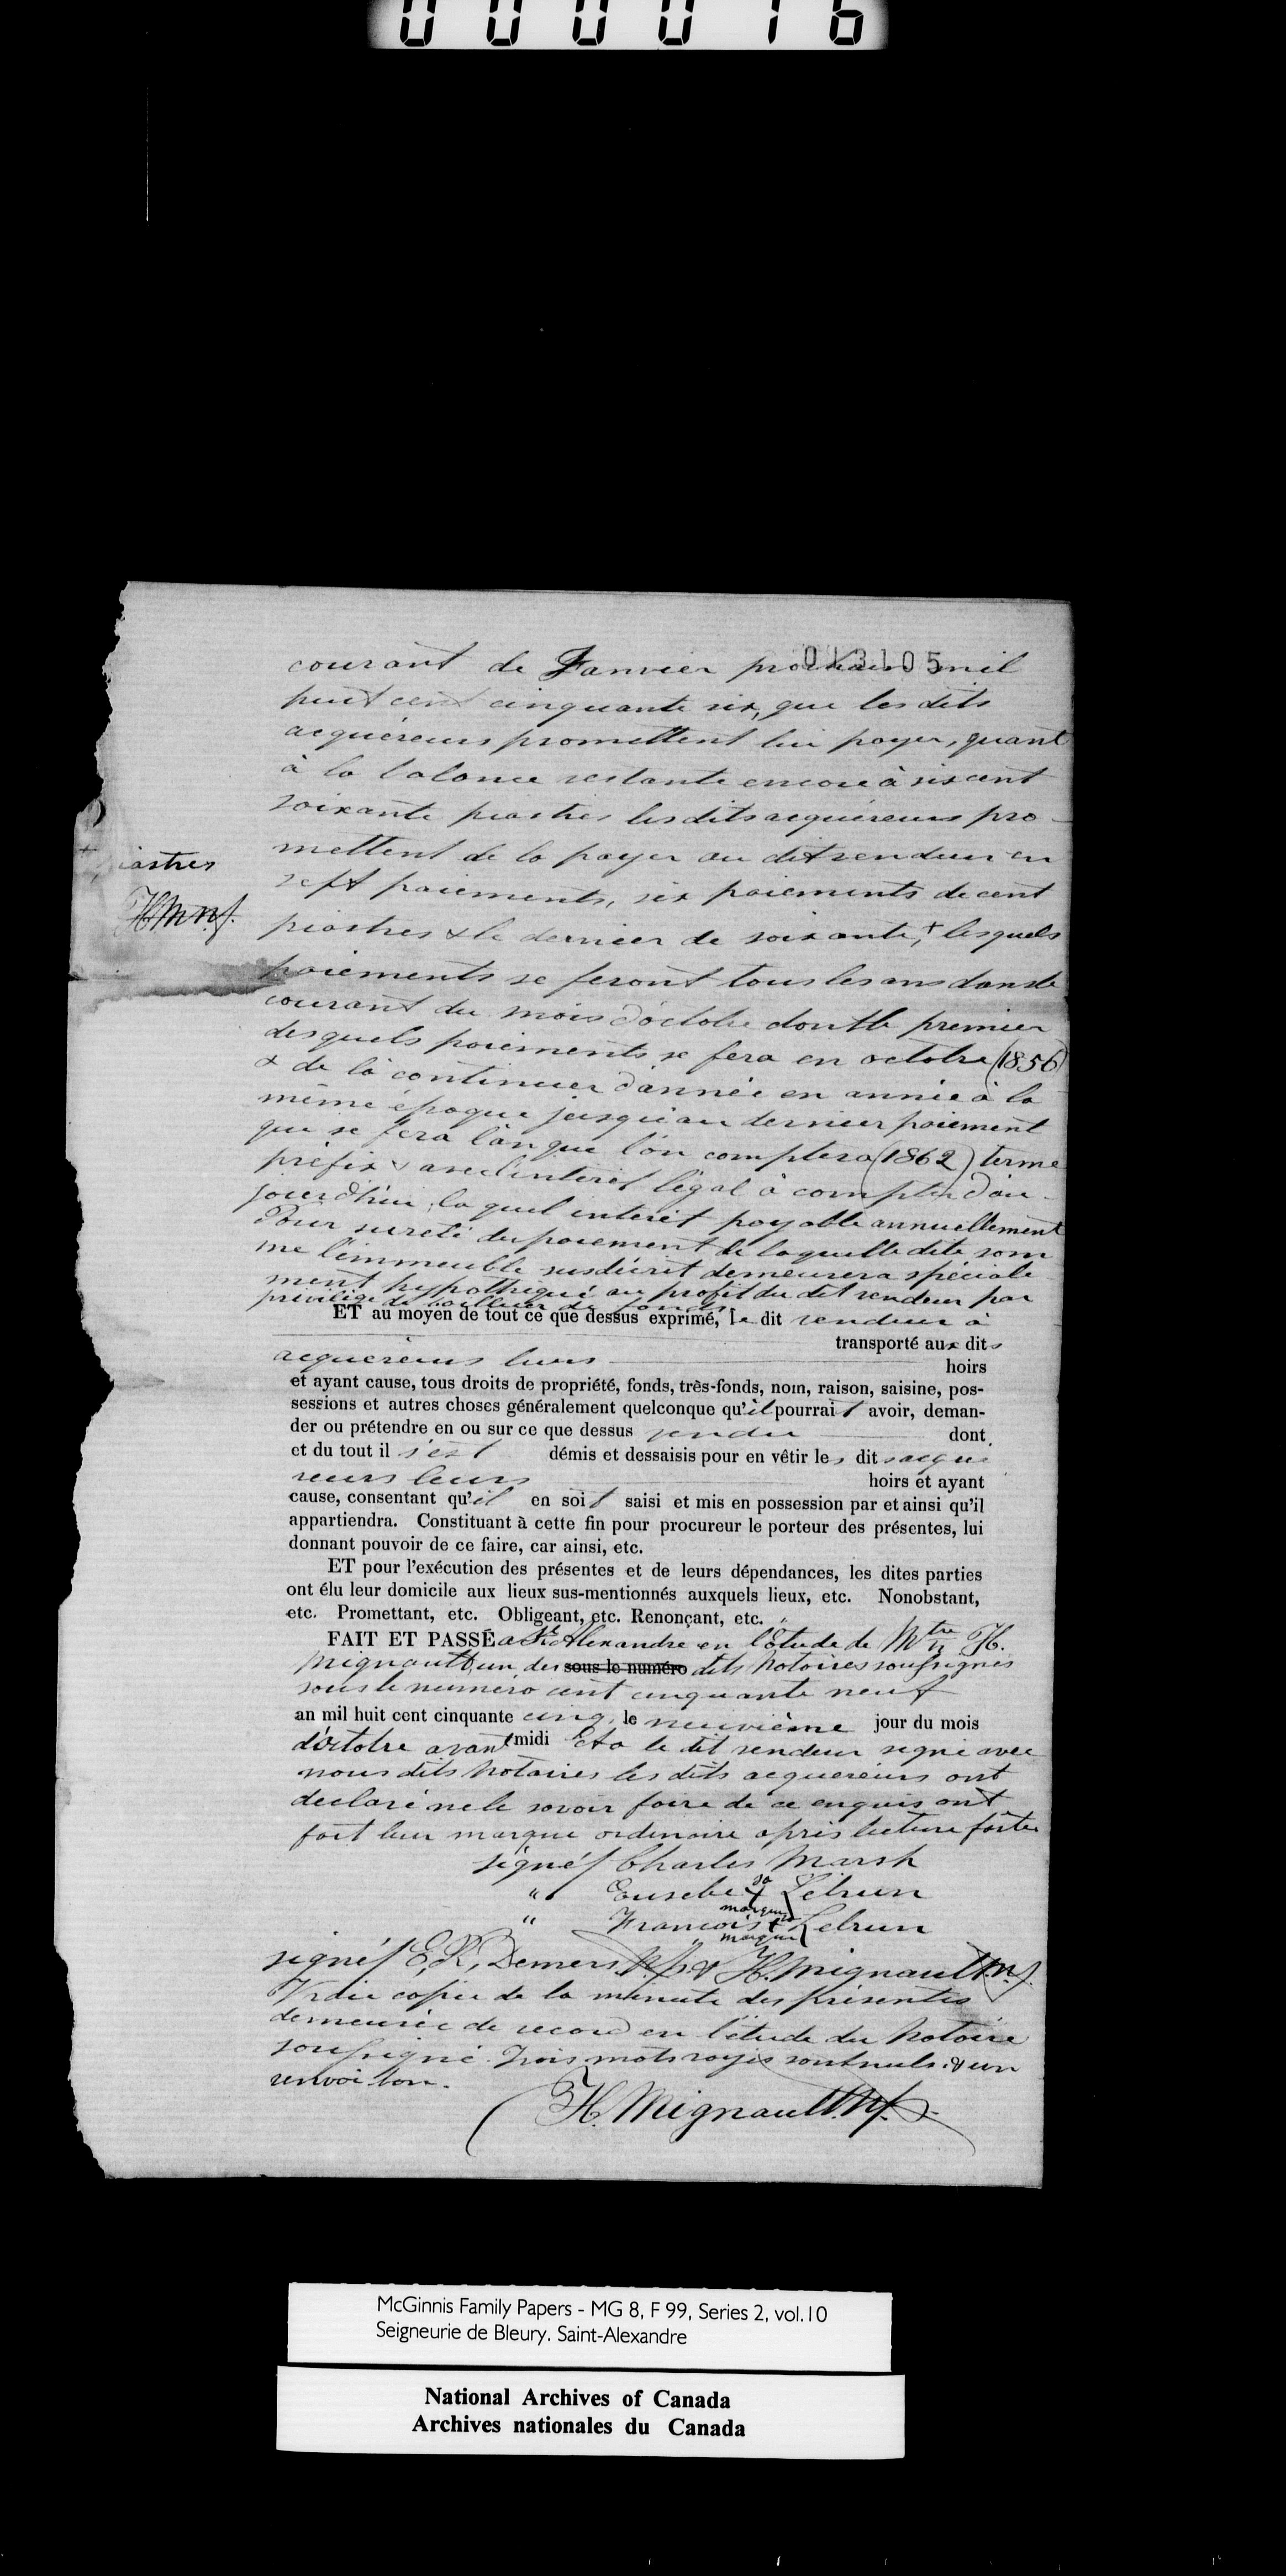 000016
013105
courant de Janvier prochain mil
huit cent cinquante six, que les dits
acquéreurs promettent lui payer, quant
à la balance restante encore à six cent
soixante piastres les dits acquéreurs pro-
mettent de la payer au dit vendeur en
sept paiements, six paiements de cent
piastres & le dernier de soixante,+ lesquels
+ piastres
H M n.p.
paiements se feront tous les ans dans le
courant du mois d'octobre dont le premier
desquels paiements se fera en octobre (1856)
& de là continuer d'année en année à la
même époque jusqu'au dernier paiement
qui se fera l'an que l'on comptera (1862) terme
préfix & avec l'intérêt légal à compter d'au-
jourd'hui, laquel intérêt payable annuellement
Pour sureté du paiement de laquelle dite som
me l'immeuble susdécrit demeurera spéciale
ment hypothiqué au profit du dit vendeur par
privilige de bailleur de fonds.
ET au moyen de tout ce que dessus exprimé, le dit vendeur à
transporté aux dits
acquéreurs leurs hoirs
et ayant cause, tous droits de propriété, fonds, très-fonds, nom, raison, saisine, pos-
sessions et autres choses généralement quelconque qu'il pourrait avoir, deman-
der ou prétendre en ou sur ce que dessus vendu dont
et du tout il s'est démis et dessaisis pour en vêtir les dits acqué
reurs leurs hoirs et ayant
cause, consentant qu'il en soit saisi et mis en possession par et ainsi qu'il
appartiendra. Constituant à cette fin pour procureur le porteur des présentes, lui
donnant pouvoir de ce faire, car ainsi, etc.
ET pour l'exécution des présentes et de leurs dépendances, les dites parties
ont élu leur domicile aux lieux sus-mentionnés auxquels lieux, etc. Nonobstant,
etc. Promettant, etc. Obligeant, etc. Renonçant, etc.
FAIT ET PASSÉ a St Alexandre en l'Etude de Mtre H.
Mignault, un des sous le numéro dits Notaires soussignés
sous le numéro cent cinquante neuf
an mil huit cent cinquante cinq, le neuvième jour du mois
d'octobre avant midi Et a le dit vendeur signé avec
nous dits Notaires les dits acquereurs ont
declaré ne le savoir faire de ce enquis ont
fait leur marque ordinaire après lecture faite
signé/ Charles Marsh
" Eusebe sa + marque Lebrun
" François sa + marque Lebrun
signé/ E, R, Demers N.P. & H. Mignault N.P.
Vraie copie de la minute des présentes
demeurée de record en l'étude du Notaire
soussigné. Trois mots rayés sont nuls & un
renvoi bon.
H. Mignault N.P.
McGinnis Family Papers - MG 8, F 99, Series 2, vol.10
Seigneurie de Bleury. Saint-Alexandre
National Archives of Canada
Archives nationales du Canada